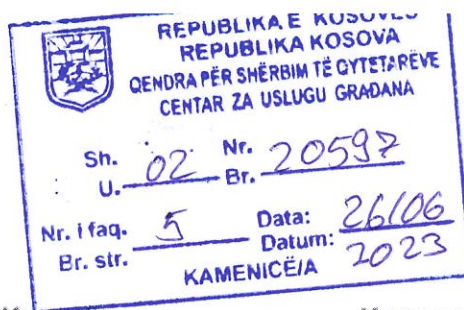 REPUBLIKA E KOSOVËS
REPUBLIKA KOSOVA
QENDRA PËR SHËRBIM TË QYTETARËVE
CENTAR ZA USLUGU GRAĐANA
Sh. 02 Nr. 20597
U. Br.
Nr. i faq. 5 Data: 26/06
Br. str. Datum: 2023
KAMENICË/A